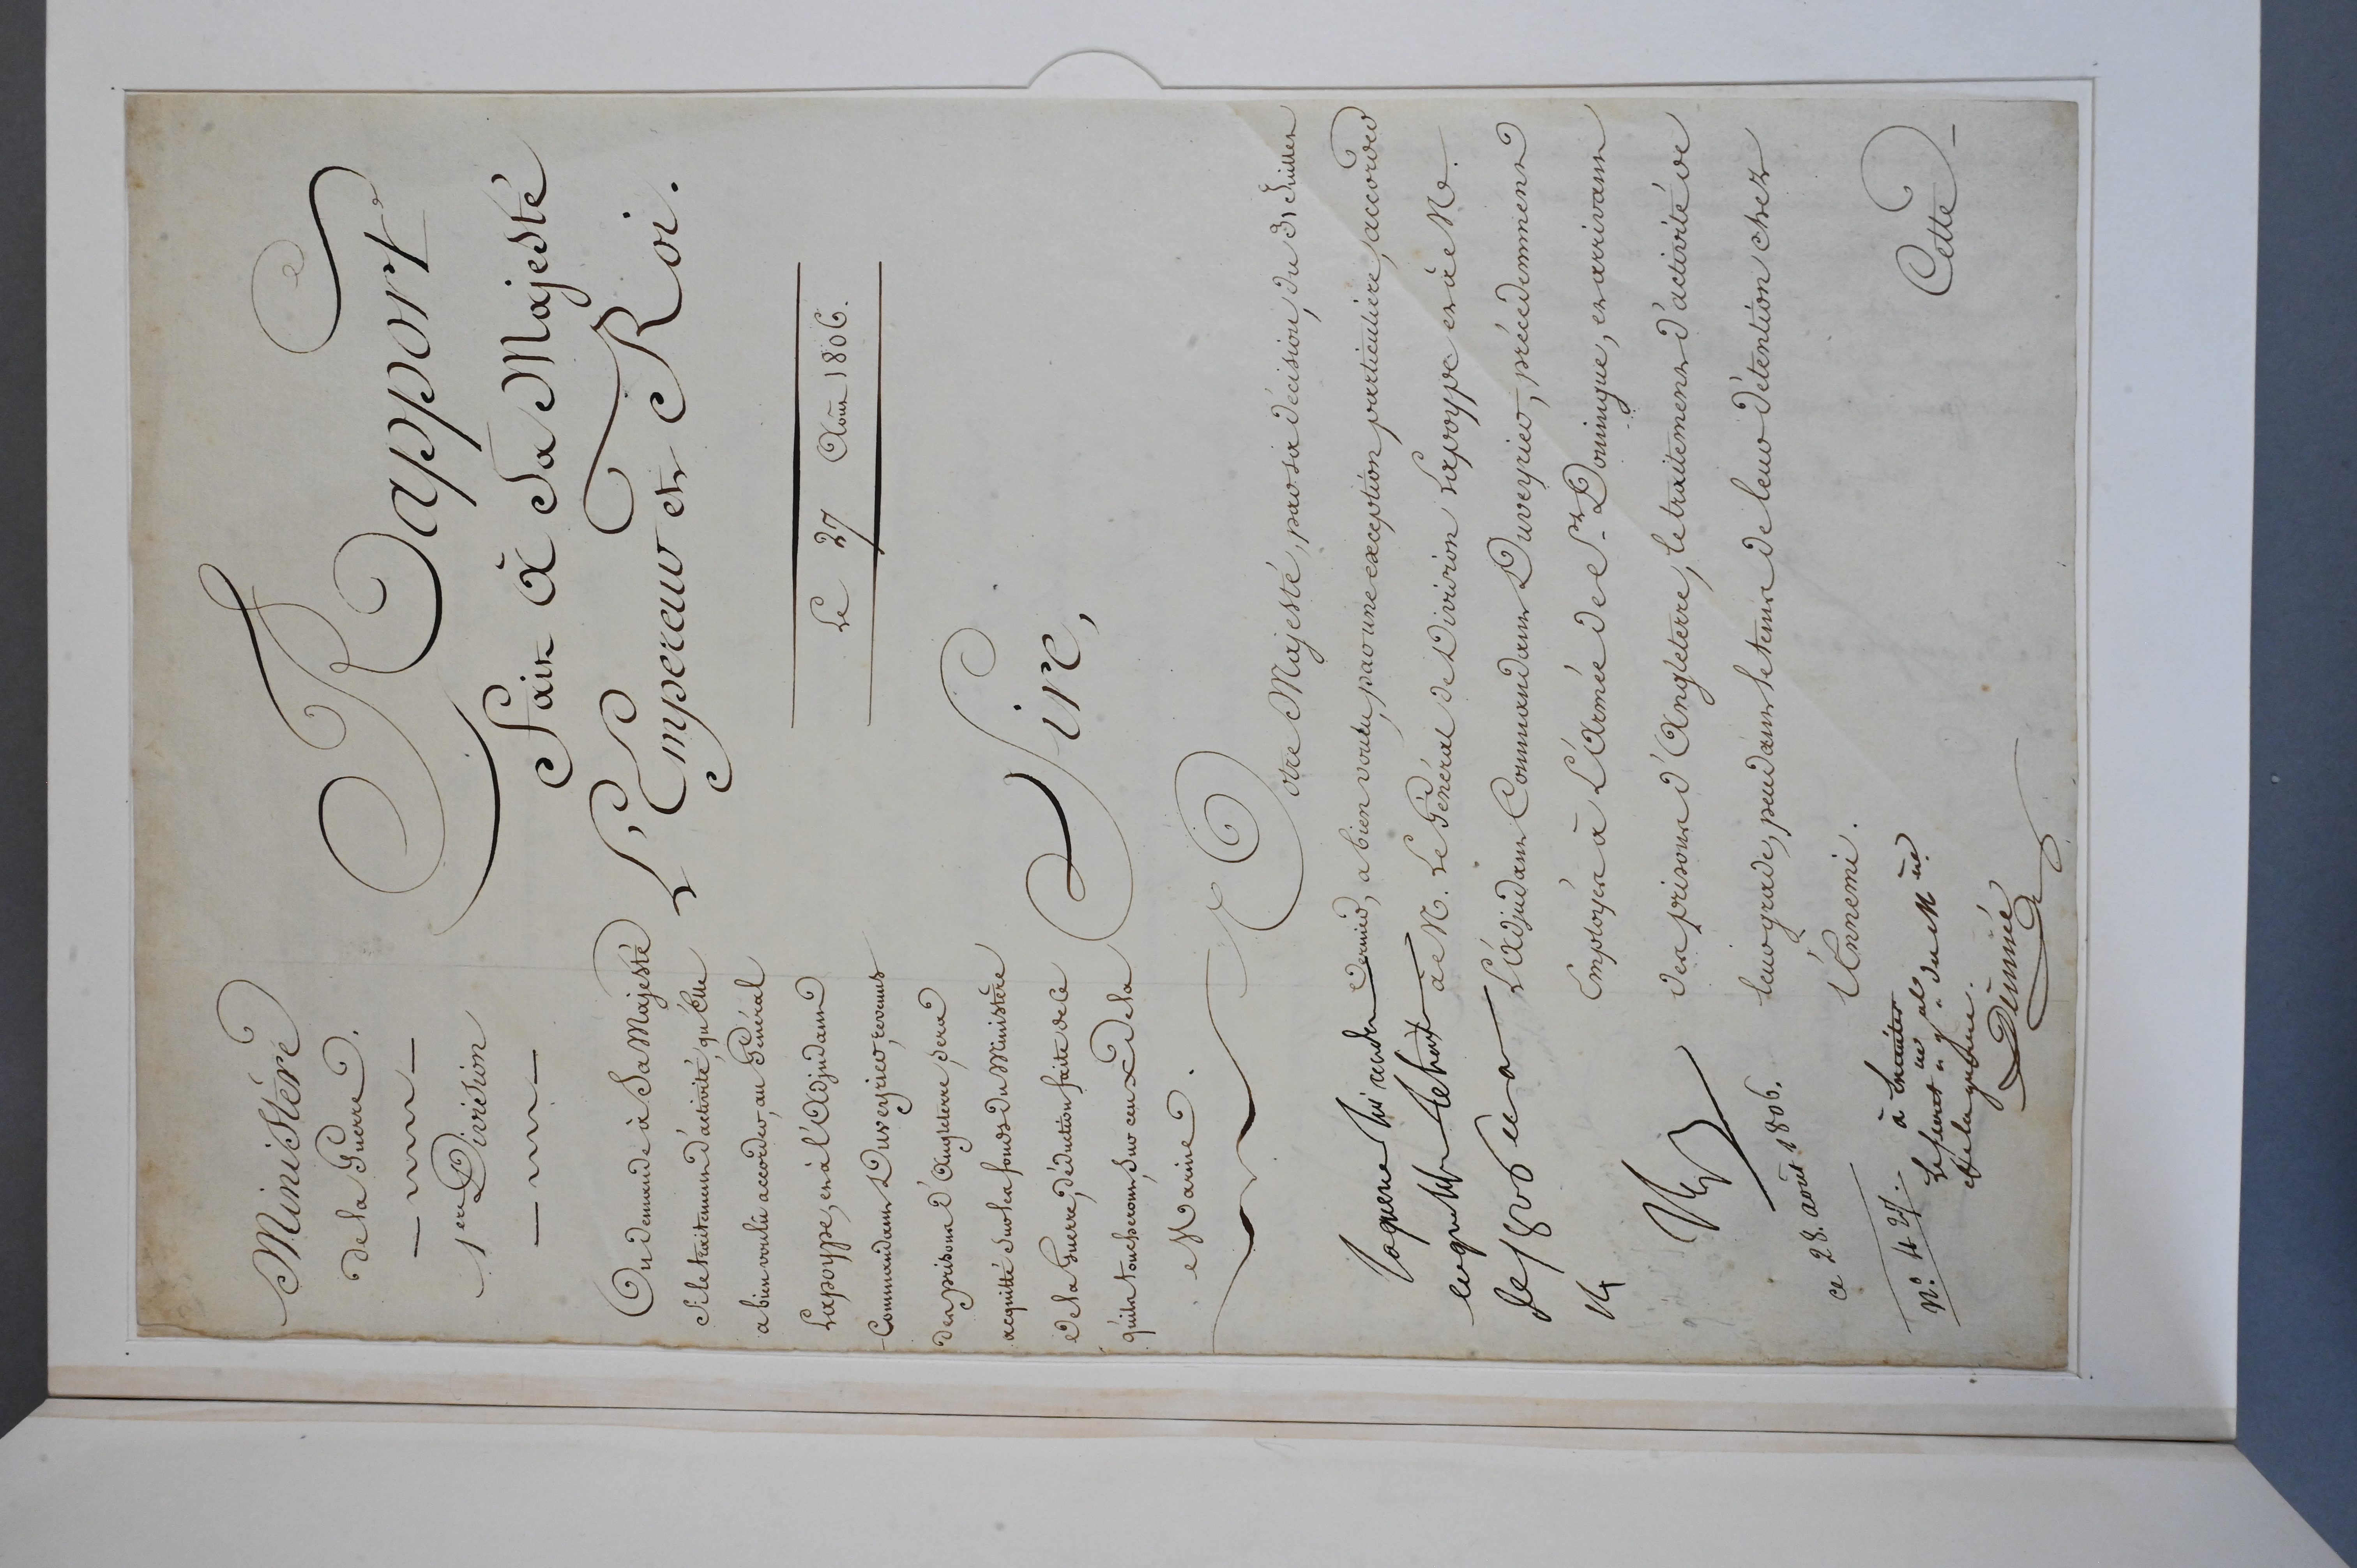 Ministère
de la Guerre.
1ere Division
Rapport
Fait à Sa Majesté
L'Empereur et Roi.
Le 27 Août 1806.
On demande à Sa Majesté
si le traitement d'activité, qu'Elle
a bien voulu accorder, au Général
Lapoype, et à l'Adjudant
Commandant Duveyrier, revenus
des prisons d'Angleterre, sera
acquitté sur les fonds du Ministère
de la Guerre, déduction faite de ce
qu'ils toucheront, sur ceux de la
Marine.
Sire,
Votre Majesté, par sa décision, du 31 Juillet
dernier, a bien voulu, par une exception particulière, accorder
à M. Le Général de Division Lapoype et à M.
L'Adjudant Commandant Duveyrier, précédemment
Employés à L'Armée de St. Domingue, et arrivant
des prisons d'Angleterre, le traitement d'activité de
leur grade, pendant le tems de leur détention chez
l'Ennemi.
Cette
de 1806
ce 28. août 1806.
N°. 427.
à Exécuter
Le secret.re g.al du M.ere
de la guerre.
Denniée